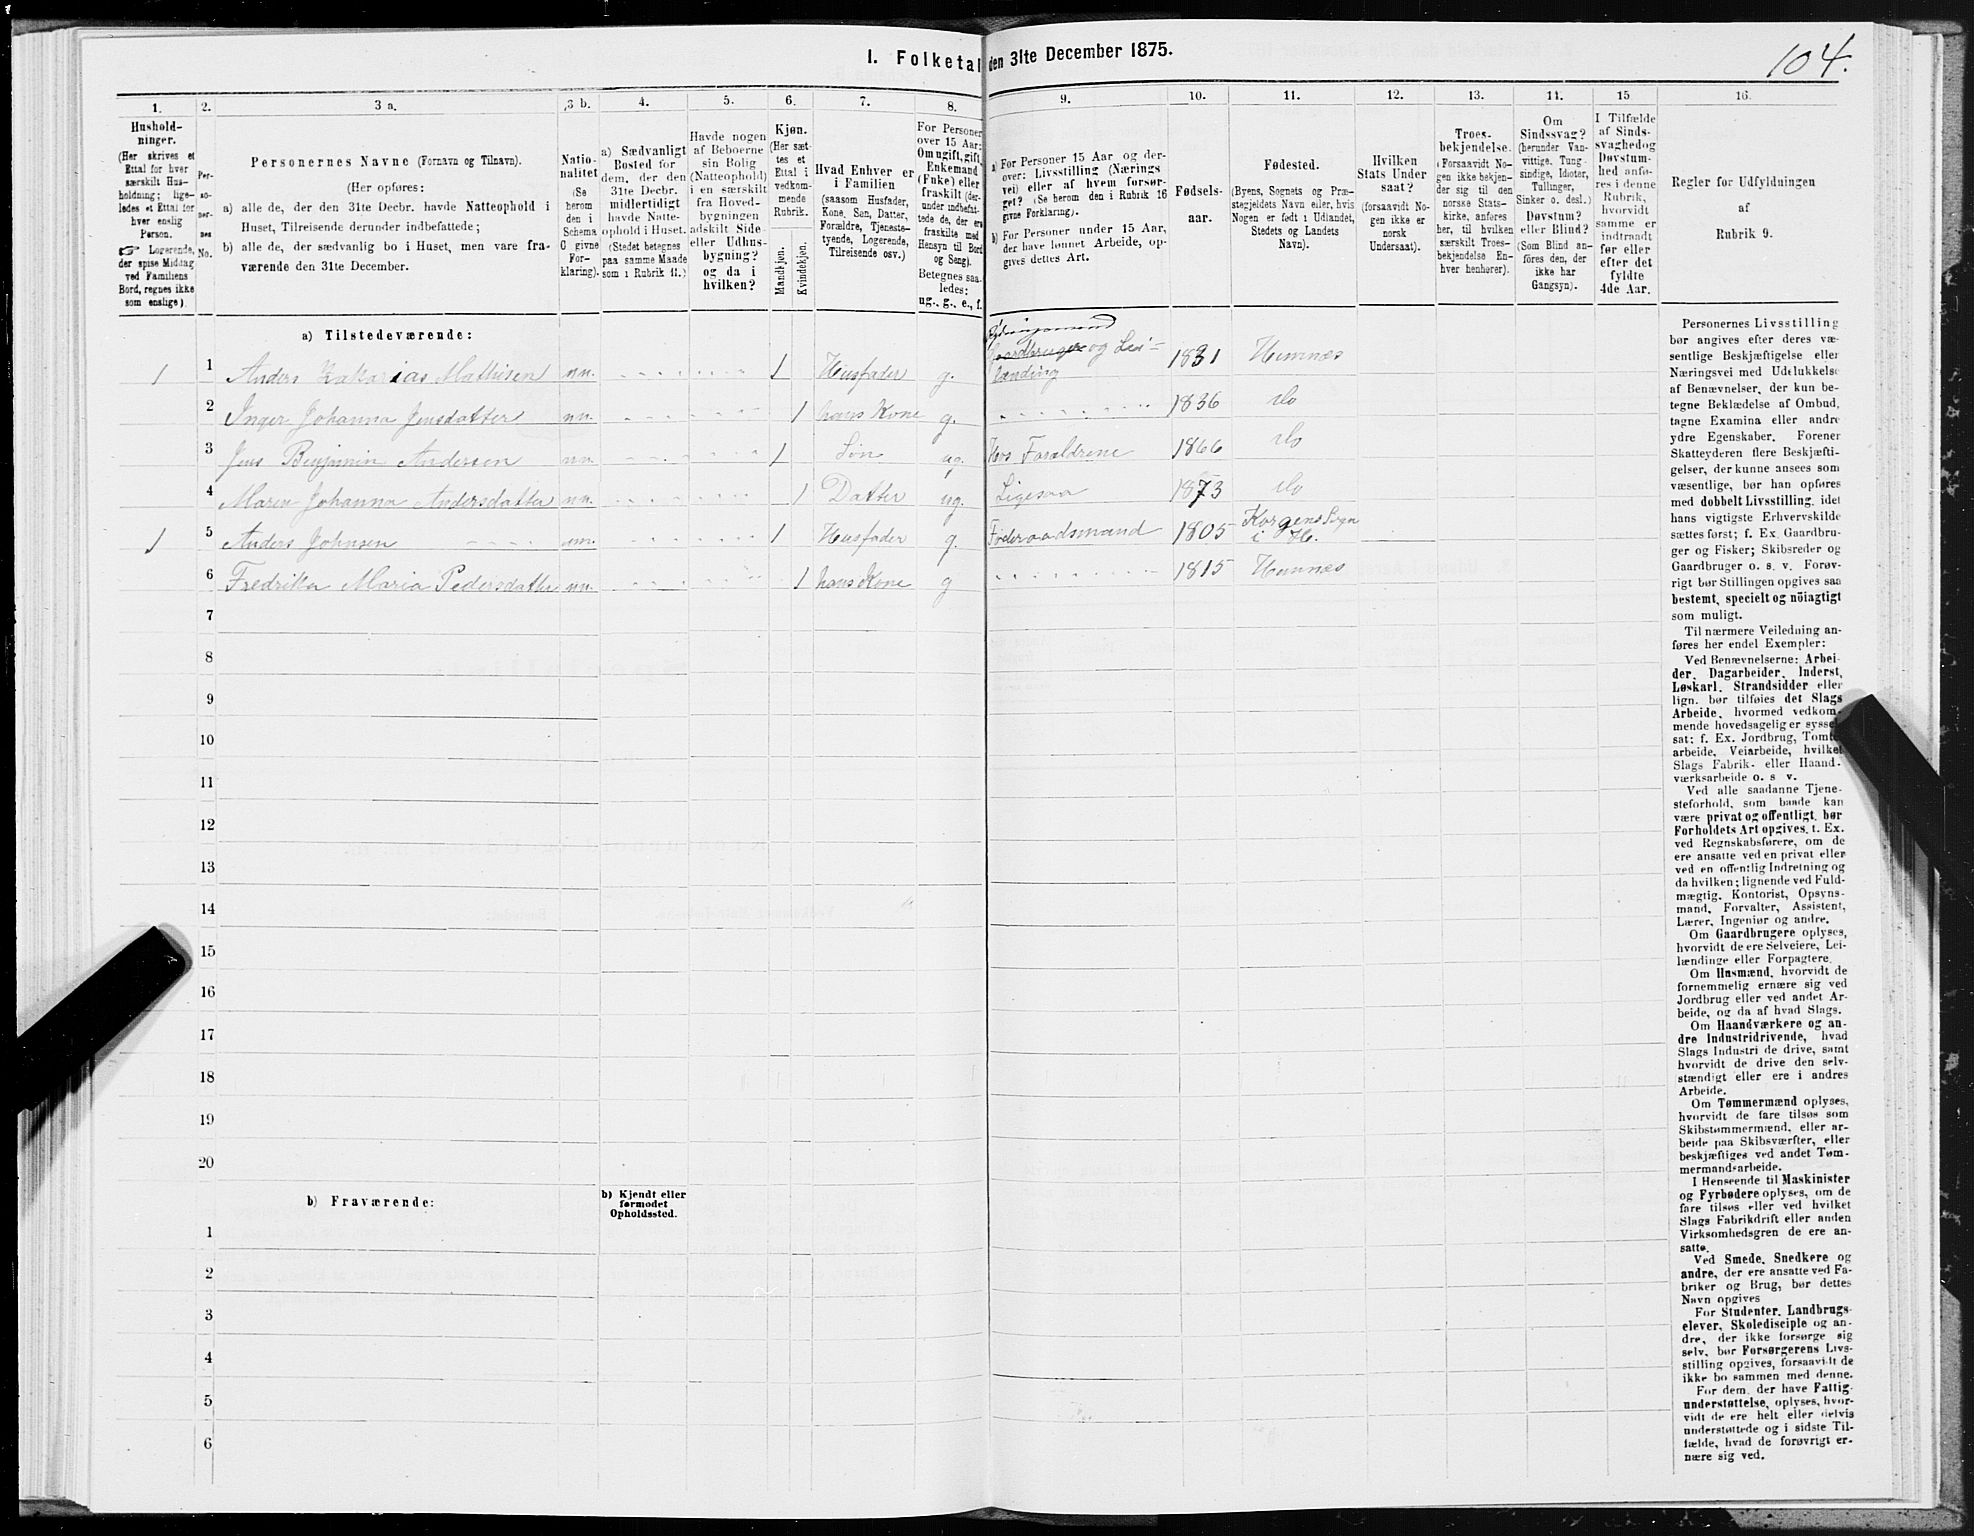 I. Folketal den 31te December 1875.
104.
1. 2. 3 a. 3 b. 4. 5. 6. 7. 8. 9. 10. 11. 12. 13. 14. 15 16.
Hushold-
ninger.
(Her skrives et
Ettal for hver
særskilt Hus-
holdning; lige-
ledes et Ettal for
hver enslig
Person.
☞ Logerende,
der spise Middag
ved Familiens
Bord, regnes ikke
som enslige).
Per-
so-
ner-
nes
No.
Personernes Navne (Fornavn og Tilnavn).
(Her opføres:
a) alle de, der den 31te Decbr. havde Natteophold i
Huset, Tilreisende derunder indbefattede;
b) alle de, der sædvanlig bo i Huset, men vare fra-
værende den 31te December.
Natio-
nalitet
(Se
herom
den i
Schema
C givne
For-
klaring).
a) Sædvanligt
Bosted for
dem, der den
31te Decbr.
midlertidigt
havde Natte-
ophold i Huset.
(Stedet betegnes
paa samme Maade
som i Rubrik 11.)
Havde nogen
af Beboerne
sin Bolig
(Natteophold)
i en særskilt
fra Hoved-
bygningen
adskilt Side-
eller Udhus-
bygning?
og da i
hvilken?
Kjøn.
(Her sæt-
tes et
Ettal i
vedkom-
mende
Rubrik.
Mandkjøn.
Kvindekjøn.
Hvad Enhver er
i Familien
(saasom Husfader,
Kone, Søn, Datter,
Forældre, Tjeneste-
tyende, Logerende,
Tilreisende osv.)
For Personer
over 15 Aar:
Om ugift, gift,
Enkemand
(Enke) eller
fraskilt (der-
under indbefat-
tede de, der ere
fraskilte med
Hensyn til Bord
og Seng).
Betegnes saa-
ledes:
ug., g., e., f.
a) For Personer 15 Aar og der-
over: Livsstilling (Nærings
vei) eller af hvem forsør-
get? (Se herom den i Rubrik 16
givne Forklaring).
b) For Personer under 15 Aar,
der have lønnet Arbeide, op-
gives dettes Art.
Fødsels-
aar.
Fødested.
(Byens, Sognets og Præ-
stegjeldets Navn eller, hvis
Nogen er født i Udlandet,
Stedets og Landets
Navn).
Hvilken
Stats Under
saat?
(forsaavidt No-
gen ikke er
norsk
Undersaat).
Troes-
bekjendelse.
(Forsaavidt No-
gen ikke bekjen-
der sig til den
norske Stats-
kirke, anføres
her, til hvilken
særskilt Troes-
bekjendelse En-
hver henhører).
Om
Sindssvag?
(herunder Van-
vittige, Tung-
sindige, Idioter,
Tullinger,
Sinker o. desl.)
Døvstum?
eller Blind?
(Som Blind an-
føres den, der
ikke har
Gangsyn).
I Tilfælde
af Sinds-
svaghed og
Døvstum-
hed anfø-
res i denne
Rubrik,
hvorvidt
samme er
indtraadt
før eller
efter det
fyldte
4de Aar.
Regler for Udfyldningen
af
Rubrik 9.
a) Tilstedeværende:
1 1 Anders Zakarias Mathisen nn. 1 Husfader g. Gaardbruger og Lei-
lænding 1831 Hemnæs
2 Inger Johanna Jensdatter nn. 1 hans Kone g. 1836 do
3 Jens Benjamin Andersen nn. 1 Søn ug. Hos Forældrene 1866 do
4 Maren Johanna Andersdatter nn. 1 Datter ug. Ligesaa 1873 do
1 5 Anders Johnsen nn. 1 Husfader g. Føderaadsmand 1805 Korgens Sogn
i H.
6 Fredrika Maria Pedersdatter nn. 1 hans Kone g 1815 Hemnæs
7
8
9
10
11
12
13
14
15
16
17
18
19
20
b) Fraværende:
b) Kjendt eller
formodet
Opholdssted.
1
2
3
4
5
6
Personernes Livsstilling
bør angives efter deres væ-
sentlige Beskjæftigelse eller
Næringsvei med Udelukkelse
af Benævnelser, der kun be-
tegne Beklædelse af Ombud,
tagne Examina eller andre
ydre Egenskaber. Forener
Skatteyderen flere Beskjæfti-
gelser, der kunne ansees som
væsentlige, bør han opføres
med dobbelt Livsstilling, idet
hans vigtigste Erhvervskilde
sættes først; f. Ex. Gaardbru-
ger og Fisker; Skibsreder og
Gaardbruger o. s. v. Forøv-
rigt bør Stillingen opgives saa
bestemt, specielt og nöiagtigt
som muligt.
Til nærmere Veiledning an-
føres her endel Exempler:
Ved Benævnelserne: Arbei-
der, Dagarbeider, Inderst,
Løskarl, Strandsidder eller
lign. bør tilføies det Slags
Arbeide, hvormed vedkom-
mende hovedsagelig er syssel-
sat; f. Ex. Jordbrug, Tomte-
arbeide, Veiarbeide, hvilket
Slags Fabrik- eller Haand-
værksarbeide o. s v.
Ved alle saadanne Tjene-
steforhold, som baade kan
være privat og offentligt, bør
Forholdets Art opgives, f. Ex.
ved Regnskabsførere, om de
ere ansatte ved en privat eller
ved en offentlig Indretning og
da hvilken; lignende ved Fuld-
mægtig, Kontorist, Opsyns-
mand, Forvalter, Assistent,
Lærer, Ingeniør og andre.
Om Gaardbrugere oplyses,
hvorvidt de ere Selveiere, Lei-
lændinge eller Forpagtere.
Om Husmænd, hvorvidt de
fornemmelig ernære sig ved
Jordbrug eller ved andet Ar-
beide, og da af hvad Slags.
Om Haandværkere og an-
dre Industridrivende, hvad
Slags Industri de drive, samt
hvorvidt de drive den selv-
stændigt eller ere i andres
Arbeide.
Om Tømmermænd oplyses,
hvorvidt de fare tilsøs som
Skibstømmermænd, eller ar-
beide paa Skibsværfter, eller
beskjæftiges ved andet Tøm-
mermandsarbeide.
I Henseende til Maskinister
og Fyrbødere oplyses, om de
fare tilsøs eller ved hvilket
Slags Fabrikdrift eller anden
Virksomhedsgren de ere an-
satte.
Ved Smede, Snedkere og
andre, der ere ansatte ved Fa-
briker og Brug, bør dettes
Navn opgives
For Studenter, Landbrugs-
elever, Skoledisciple og an-
dre, der ikke forsørge sig
selv, bør Forsørgerens Livs-
stilling opgives, forsaavidt de
ikke bo sammen med denne.
For dem, der have Fattig-
understøttelse, oplyses, hvor-
vidt de ere helt eller delvis
understøttede og i sidste Til-
fælde, hvad de forøvrigt er-
nære sig ved.